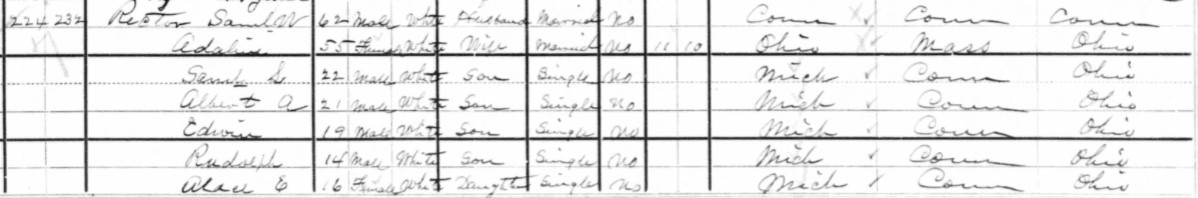 224 232 Rector Saml W 62 Male White Husband Married No Conn Conn Conn
Adaline 55 Female White Wife Married No 11 10 Ohio Mass Ohio
Saml S 22 Male White Son Single No Mich Conn Ohio
Albert A 21 Male White Son Single No Mich Conn Ohio
Edwin 19 Male White Son Single No Mich Conn Ohio
Rudolph 14 Male White Son Single No Mich Conn Ohio
E 16 Female White Daughter Single No Mich Conn Ohio